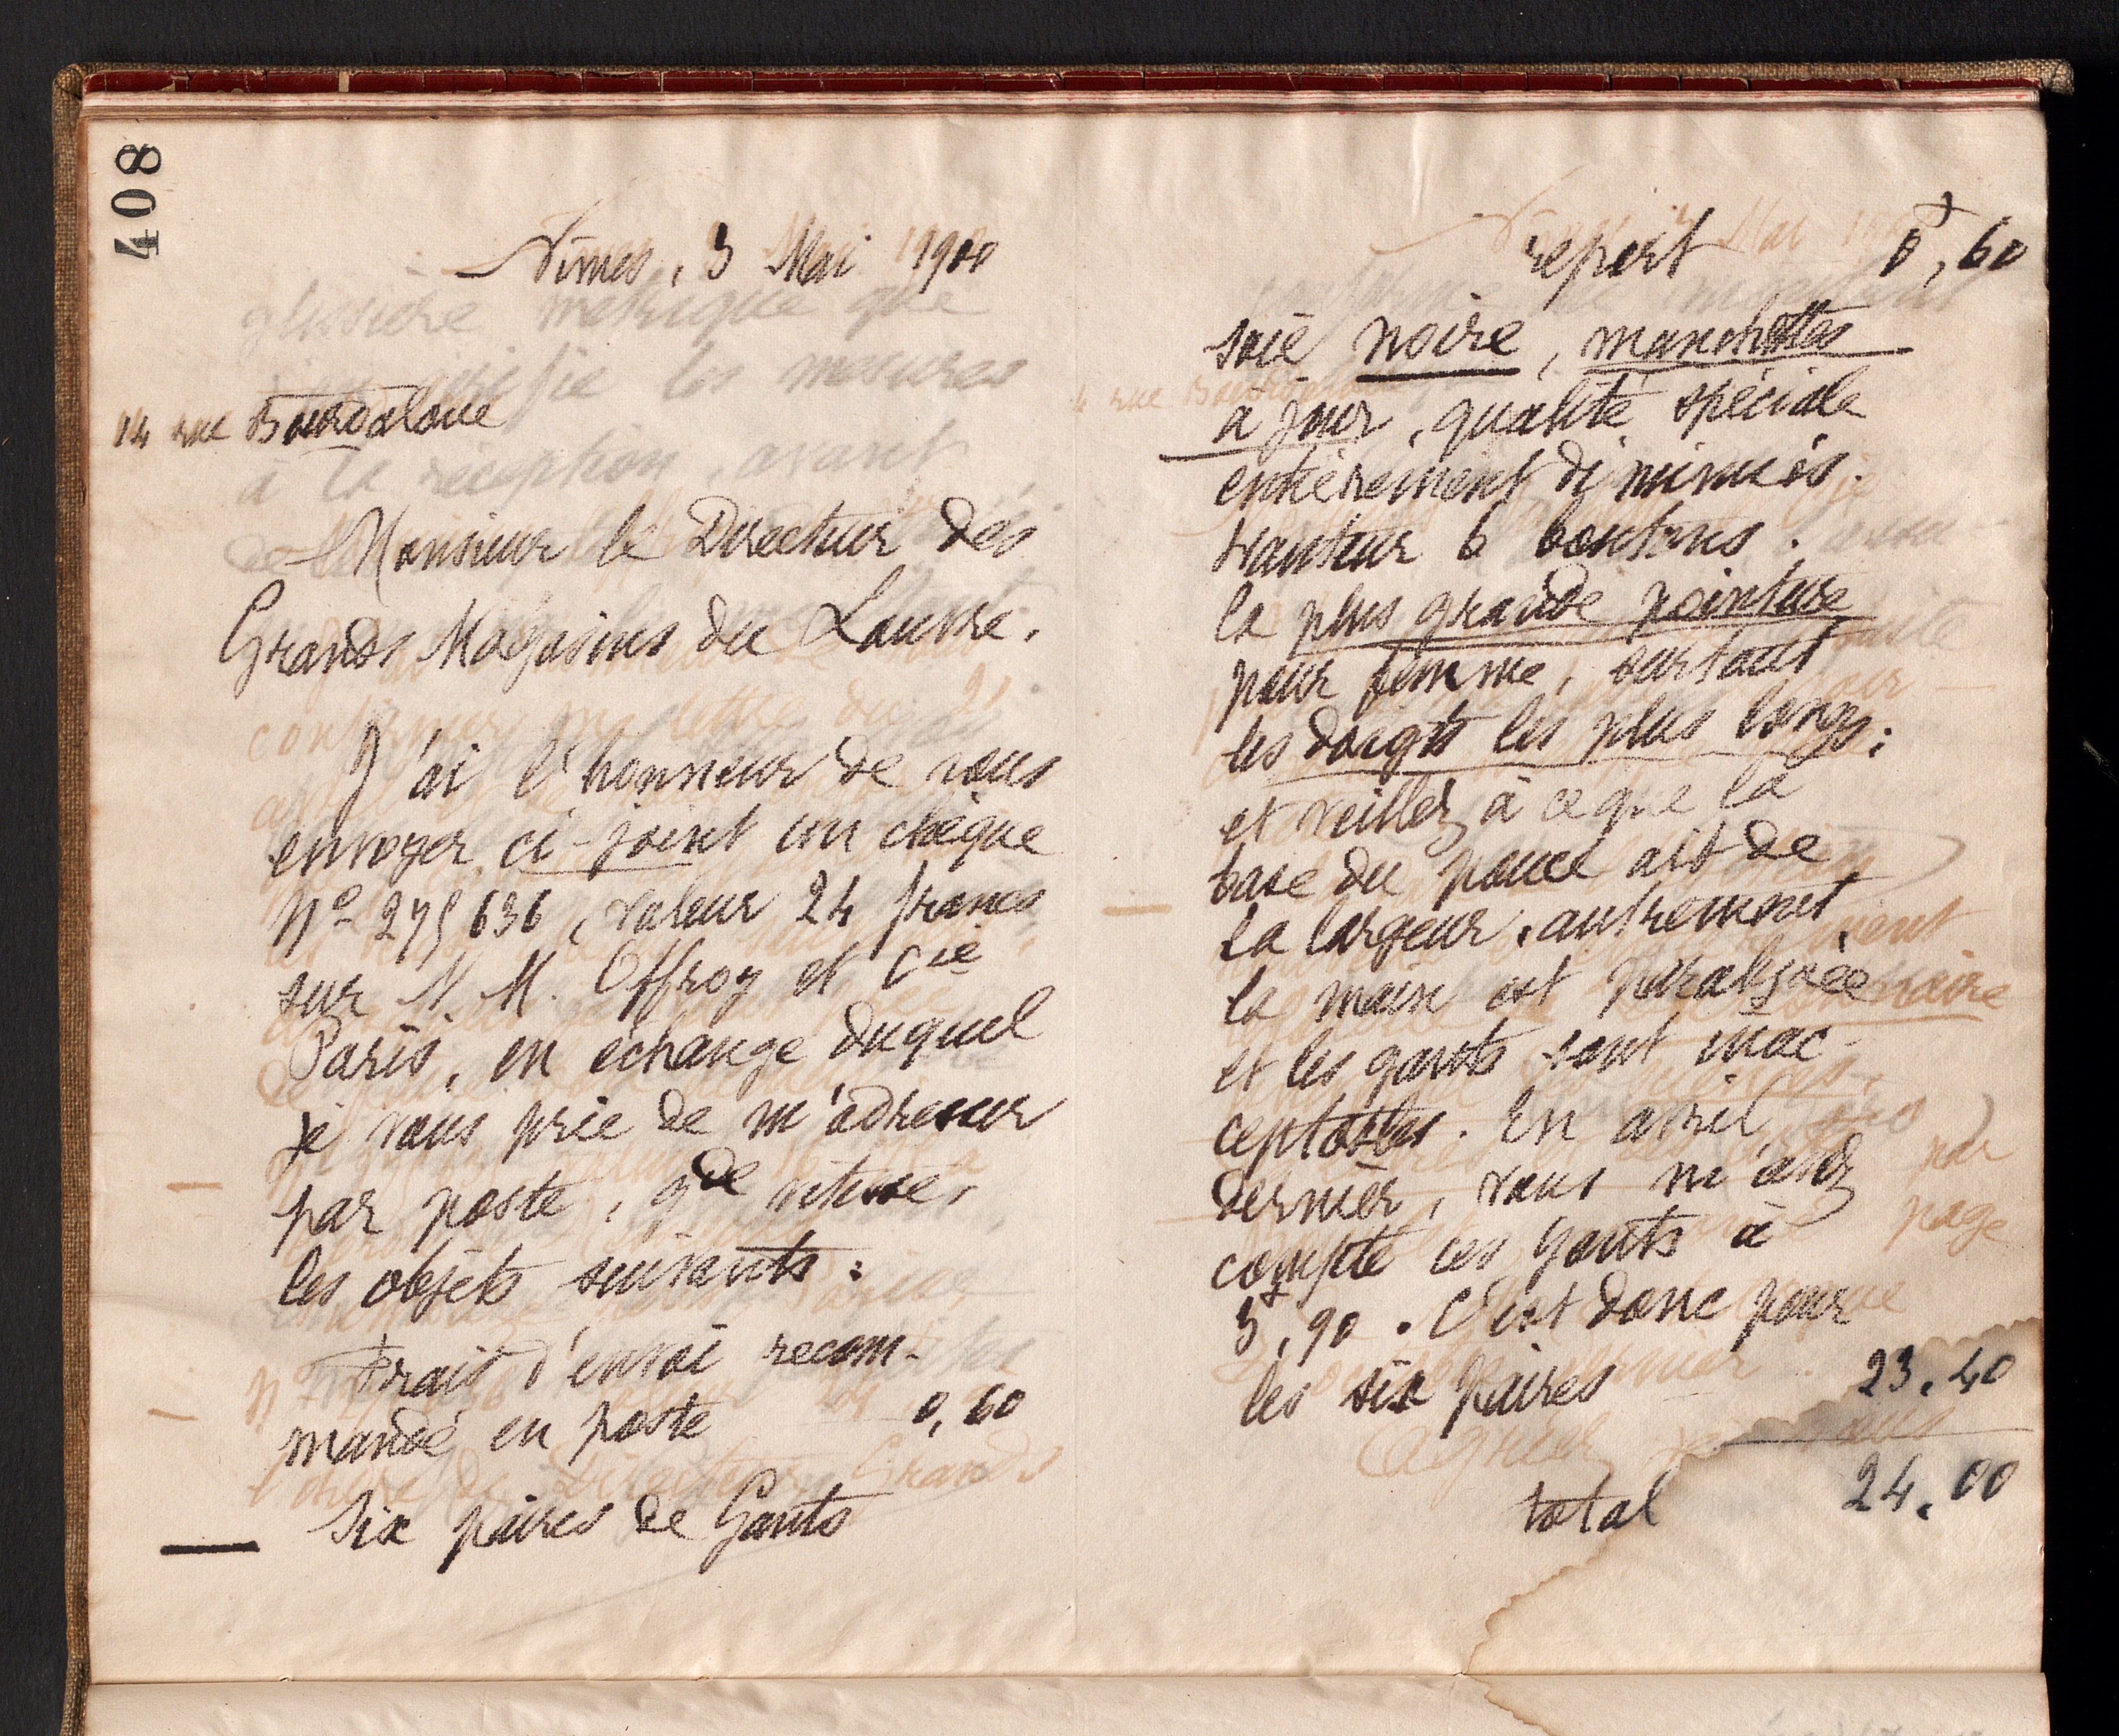 408
Nîmes, 3 Mai 1900
14 rue Bourdaloue
Monsieur le Directeur des
Grands Magasins du Louvre.
J'ai l'honneur de vous
envoyer ci-joint un chèque
Nº 275636, valeur 24 francs
sur M.M. Offroy et Cie
Paris, en échange duquel
je vous prie de m'adresser
par poste, gde vitesse,
les objets suivants :
Frais d'envoi recom-
mandé en poste 0,60
Six paires de Gants
report 0,60
soie noire, manchettes
à jour, qualité spéciale
entièrement diminués.
hauteur 6 boutons.
la plus grande pointure
pour femme, surtout
les doigts les plus longs ;
et veillez à ce que la
base du pouce ait de
la largeur, autrement,
la main est paralysée
et les gants sont inac-
ceptables. En avril
dernier, vous m'avez
compté ces gants à
3,90. C'est donc pour
les six paires 23.40
total 24.00